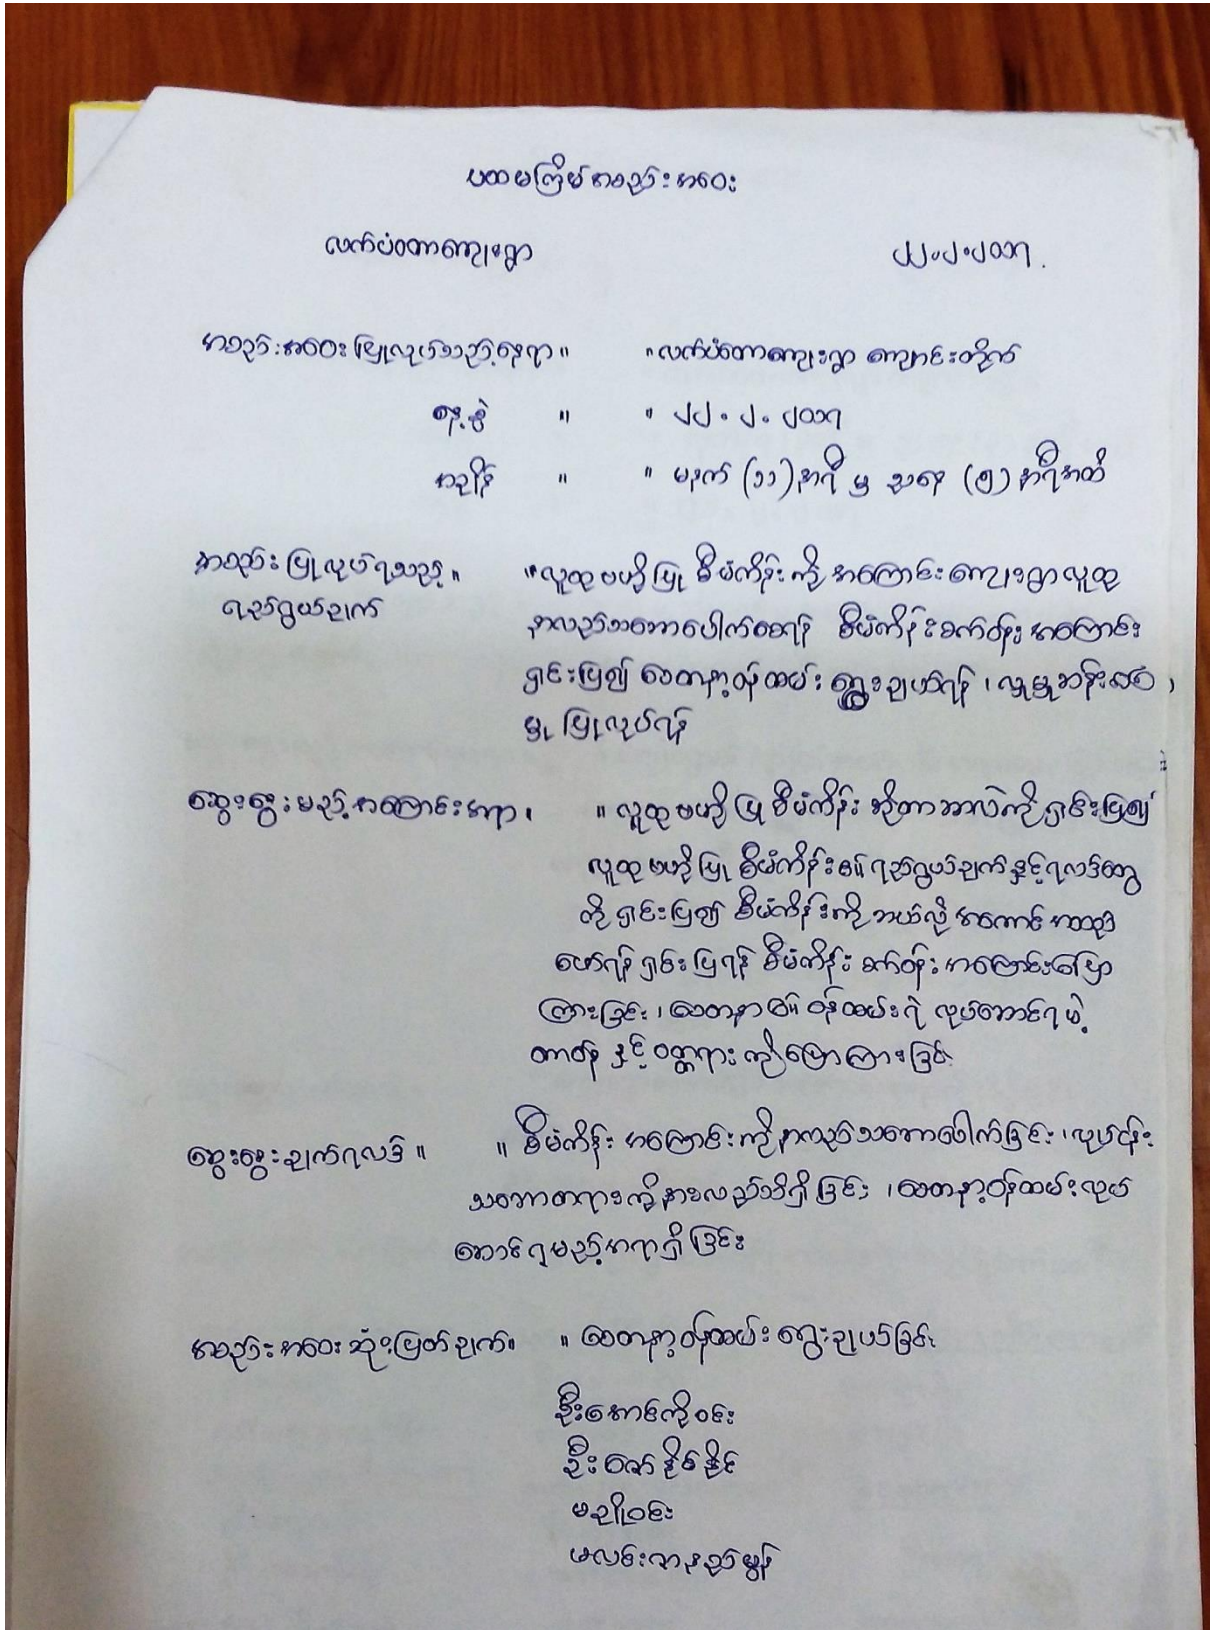 ပထမကြိမ်အစည်းအဝေး
လက်ပံတောကျေးရွာ ၂၂.၂.၂၀၁၇.
အစည်းအဝေးပြုလုပ်သည့်နေရာ ။ ။ လက်ပံတောကျေးရွာ ကျောင်းတိုက်
နေ့စွဲ ။ ။ ၂၂.၂.၂၀၁၇
အချိန် ။ ။ မနက် (၁၁) နာရီ မှ ညနေ (၅) နာရီအထိ
အစည်းပြုလုပ်ရသည့် ။ ။ လူထုဗဟိုပြု စီမံကိန်းကို အကြောင်း ကျေးရွာလူထု
ရည်ရွယ်ချက် နားလည်သဘောပေါက်စေရန် စီမံကိန်း စက်ဝန်း အကြောင်း
ရှင်းပြ၍ စေတနာ့ဝန်ထမ်း ရွေးချယ်ရန် ၊ လူမှုဆန်းစစ်
မှု ပြုလုပ်ရန်
ဆွေးနွေးမည့်အကြောင်းအရာ ။ ။ လူထုဗဟိုပြု စီမံကိန်း ဆိုတာဘာလဲကို ရှင်းပြ၍
လူထုဗဟိုပြု စီမံကိန်း၏ ရည်ရွယ်ချက် နှင့် ရလဒ်တွေ
ကို ရှင်းပြ၍ စီမံကိန်းကို ဘယ်လို အကောင်အထည်
ဖော်ရန် ရှင်းပြရန် စီမံကိန်း စက်ဝန်း အကြောင်းပြော
ကြားခြင်း ၊ စေတနာ့ ဝန်ထမ်းရဲ့ လုပ်ဆောင်ရမဲ့
တာဝန် နှင့် ဝတ္တရား ကိုပြောကြားခြင်း
ဆွေးနွေးချက်ရလဒ် ။ ။ စီမံကိန်း အကြောင်းကို နားလည်သဘောပေါက်ခြင်း ၊ လုပ်ငန်း
သဘောတရားကို နားလည်သိရှိခြင်း ၊ စေတနာ့ဝန်ထမ်းလုပ်
ဆောင်ရမည့်အရာ ရှိခြင်း
အစည်းအဝေး ဆုံးဖြတ်ချက် ။ ။ စေတနာ့ဝန်ထမ်း ရွေးချယ်ခြင်း
ဦးအောင်ကိုဝင်း
ဦးဇော်နိုင်နိုင်
မချိုဝင်း
မလင်းဇာနည်မွန်